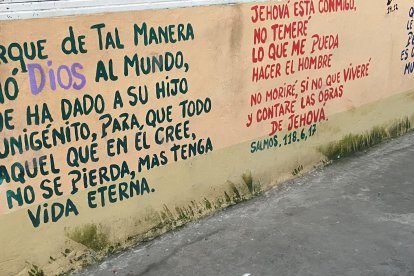 rque de Tal Manera
ó Dios al Mundo,
e ha dado a su Hijo
Unigénito, para que todo
aquel que en él cree,
no se pierda, mas tenga
vida eterna.
Jehová está conmigo,
no temeré
lo que me pueda
hacer el hombre
No moriré, si no que viveré
y contaré las obras
de Jehová.
Salmos, 118.6, 17